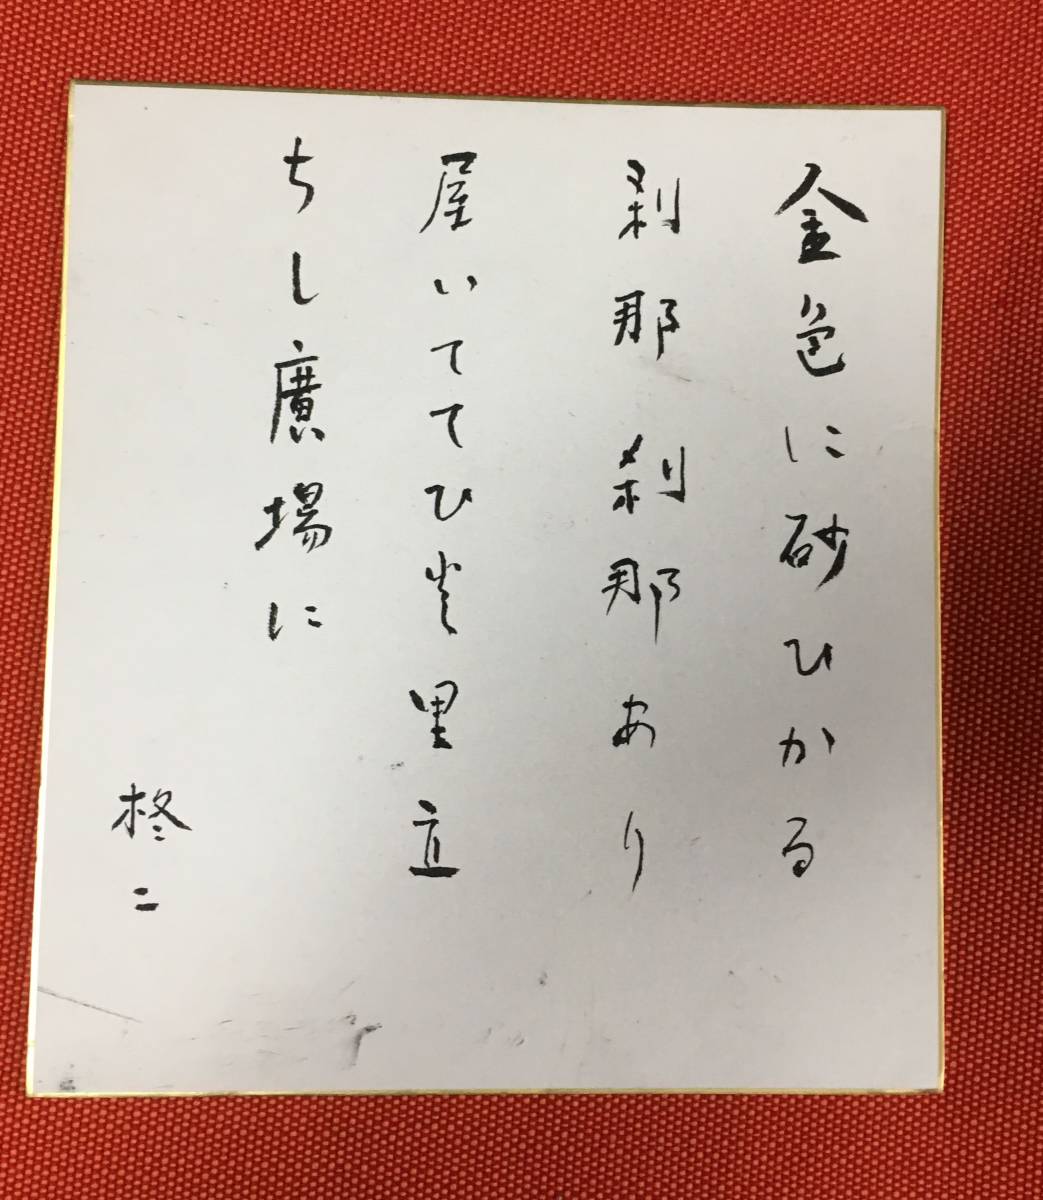 金色に砂ひかる
刹那刹那あり
屋いててひ登里立
ちし廣場に
柊二